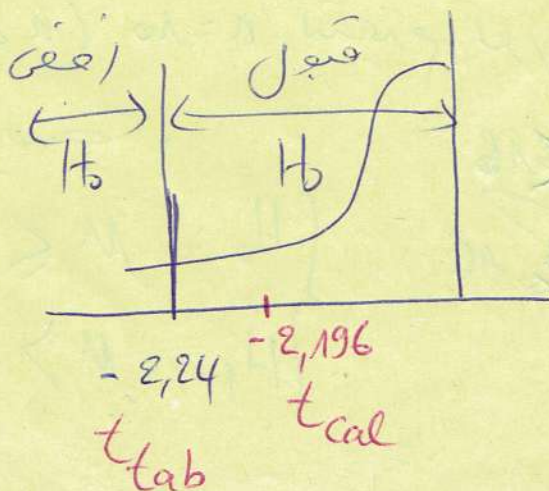 رفض قبول
H₀ H₀
- 2,24 - 2,196
t tab t cal